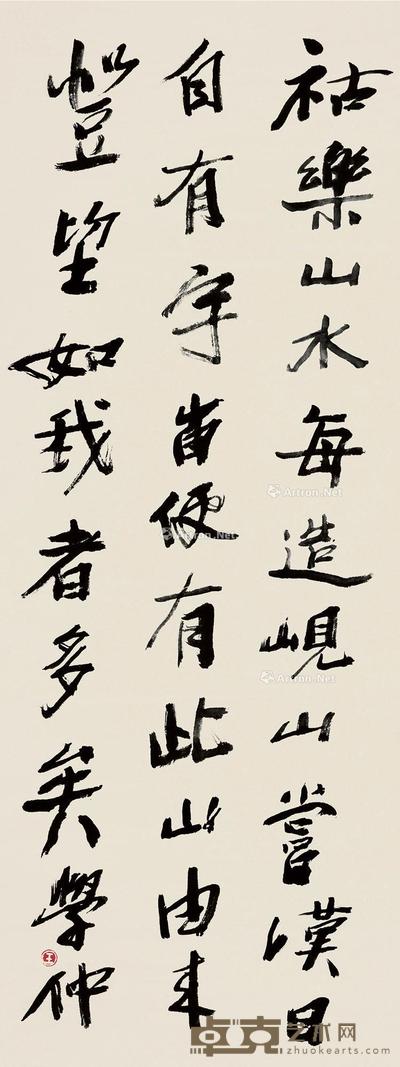 祜樂山水每造峴山嘗嘆曰
自有宇宙便有此山由来
登望如我者多矣學仲
王
Artron.Net
Artron.Net
Artron.Net
卓克艺术网
zhuokearts.com